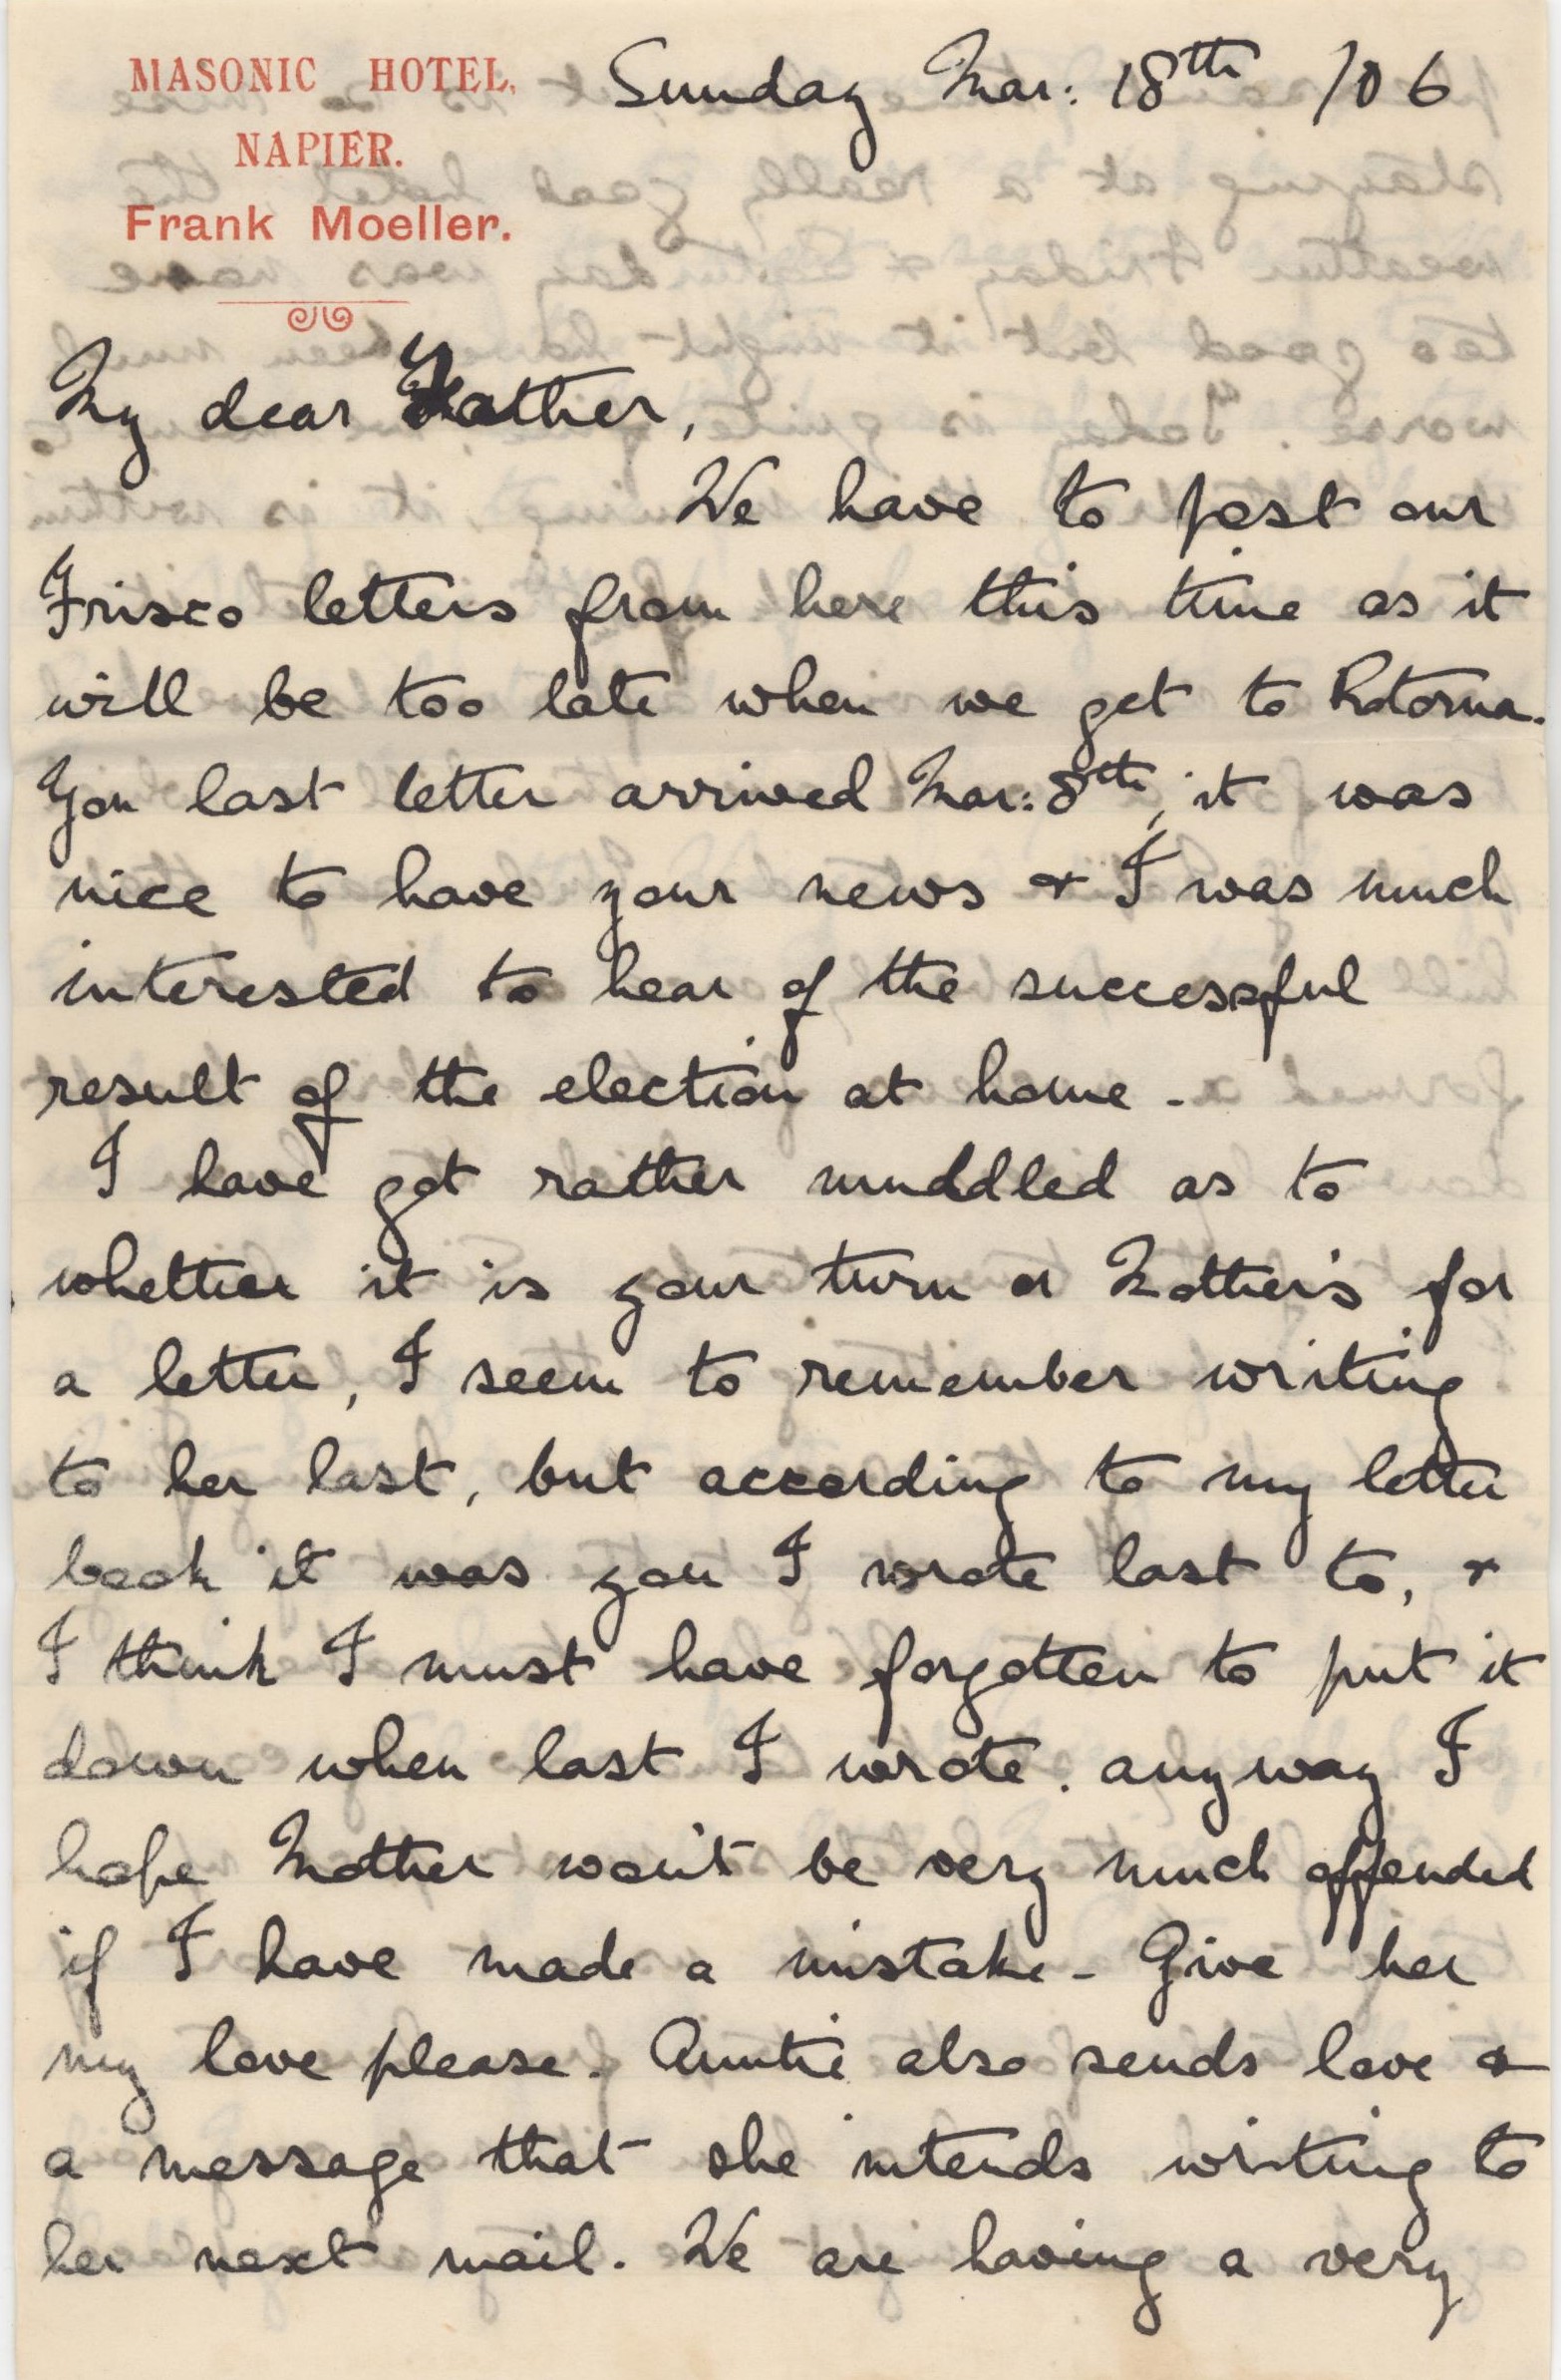 MASONIC HOTEL,
NAPIER.
Frank Moeller.
Sunday Mar: 18th /06
My dear Father,
We have to post our
Frisco letters from here this time as it
will be too late when we get to Rotorua.
You last letter arrived Mar: 8th, it was
nice to have your news & I was much
interested to hear of the successful
result of the election at home -
I have got rather muddled as to
whether it is your turn or Mother's for
a letter, I seem to remember writing
to her last, but according to my letter
book it was you I wrote last to, &
I think I must have forgotten to put it
down when last I wrote. anyway I
hope Mother won't be very much offended
if I have made a mistake - Give her
my love please. Auntie also sends love &
a message that she intends writing to
her next mail. We are having a very